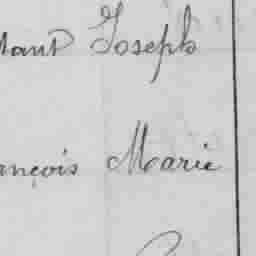 tant Joseph
ançois Marie